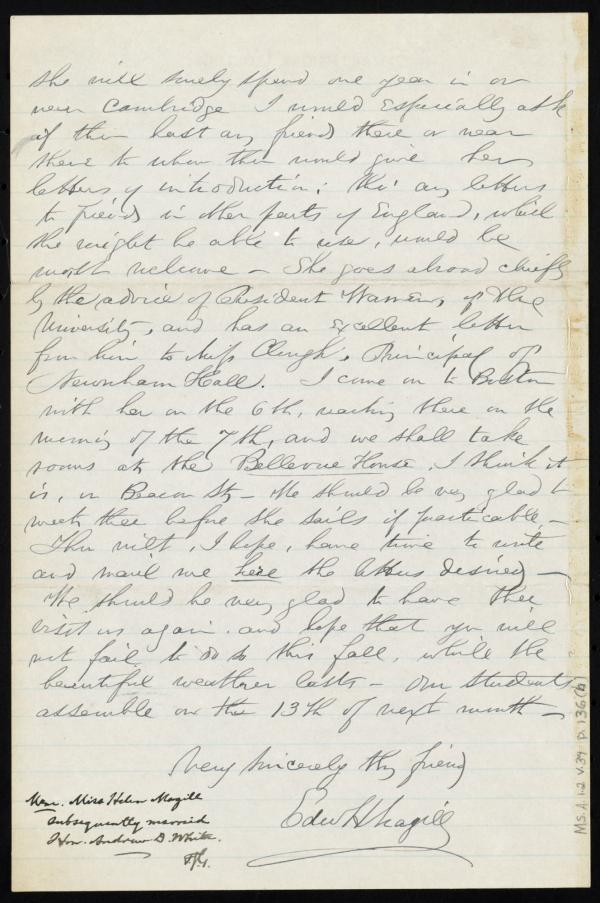 she will surely spend one year in or
near Cambridge I would especially ask
if thou hast any friends there or near
there to whom thou would give her
letters of introduction; tho' any letters
to friends in other parts of England, which
she might be able to use, would be
most welcome — She goes abroad chiefly
by the advice of President Warren, of the
University, and has an excellent letter
from him to Miss Clough, Principal of
Newnham Hall. I come on to Boston
with her on the 6th, reaching there on the
morning of the 7th, and we shall take
rooms at the Bellevue House, I think it
is, on Beacon St — We should be very glad to
meet thee before she sails if practicable —
Thou wilt, I hope, have time to write
and mail me here the letters desired —
We should be very glad to have thee
visit us again and hope that you will
not fail to do so this fall, while the
beautiful weather lasts — Our students
assemble on the 13th of next month —
Very sincerely thy friend
Edw H Magill
Miss Helen Magill
subsequently married
Hon. Andrew D. White.
MS. A. 1.2 v.39 p. 136(b)